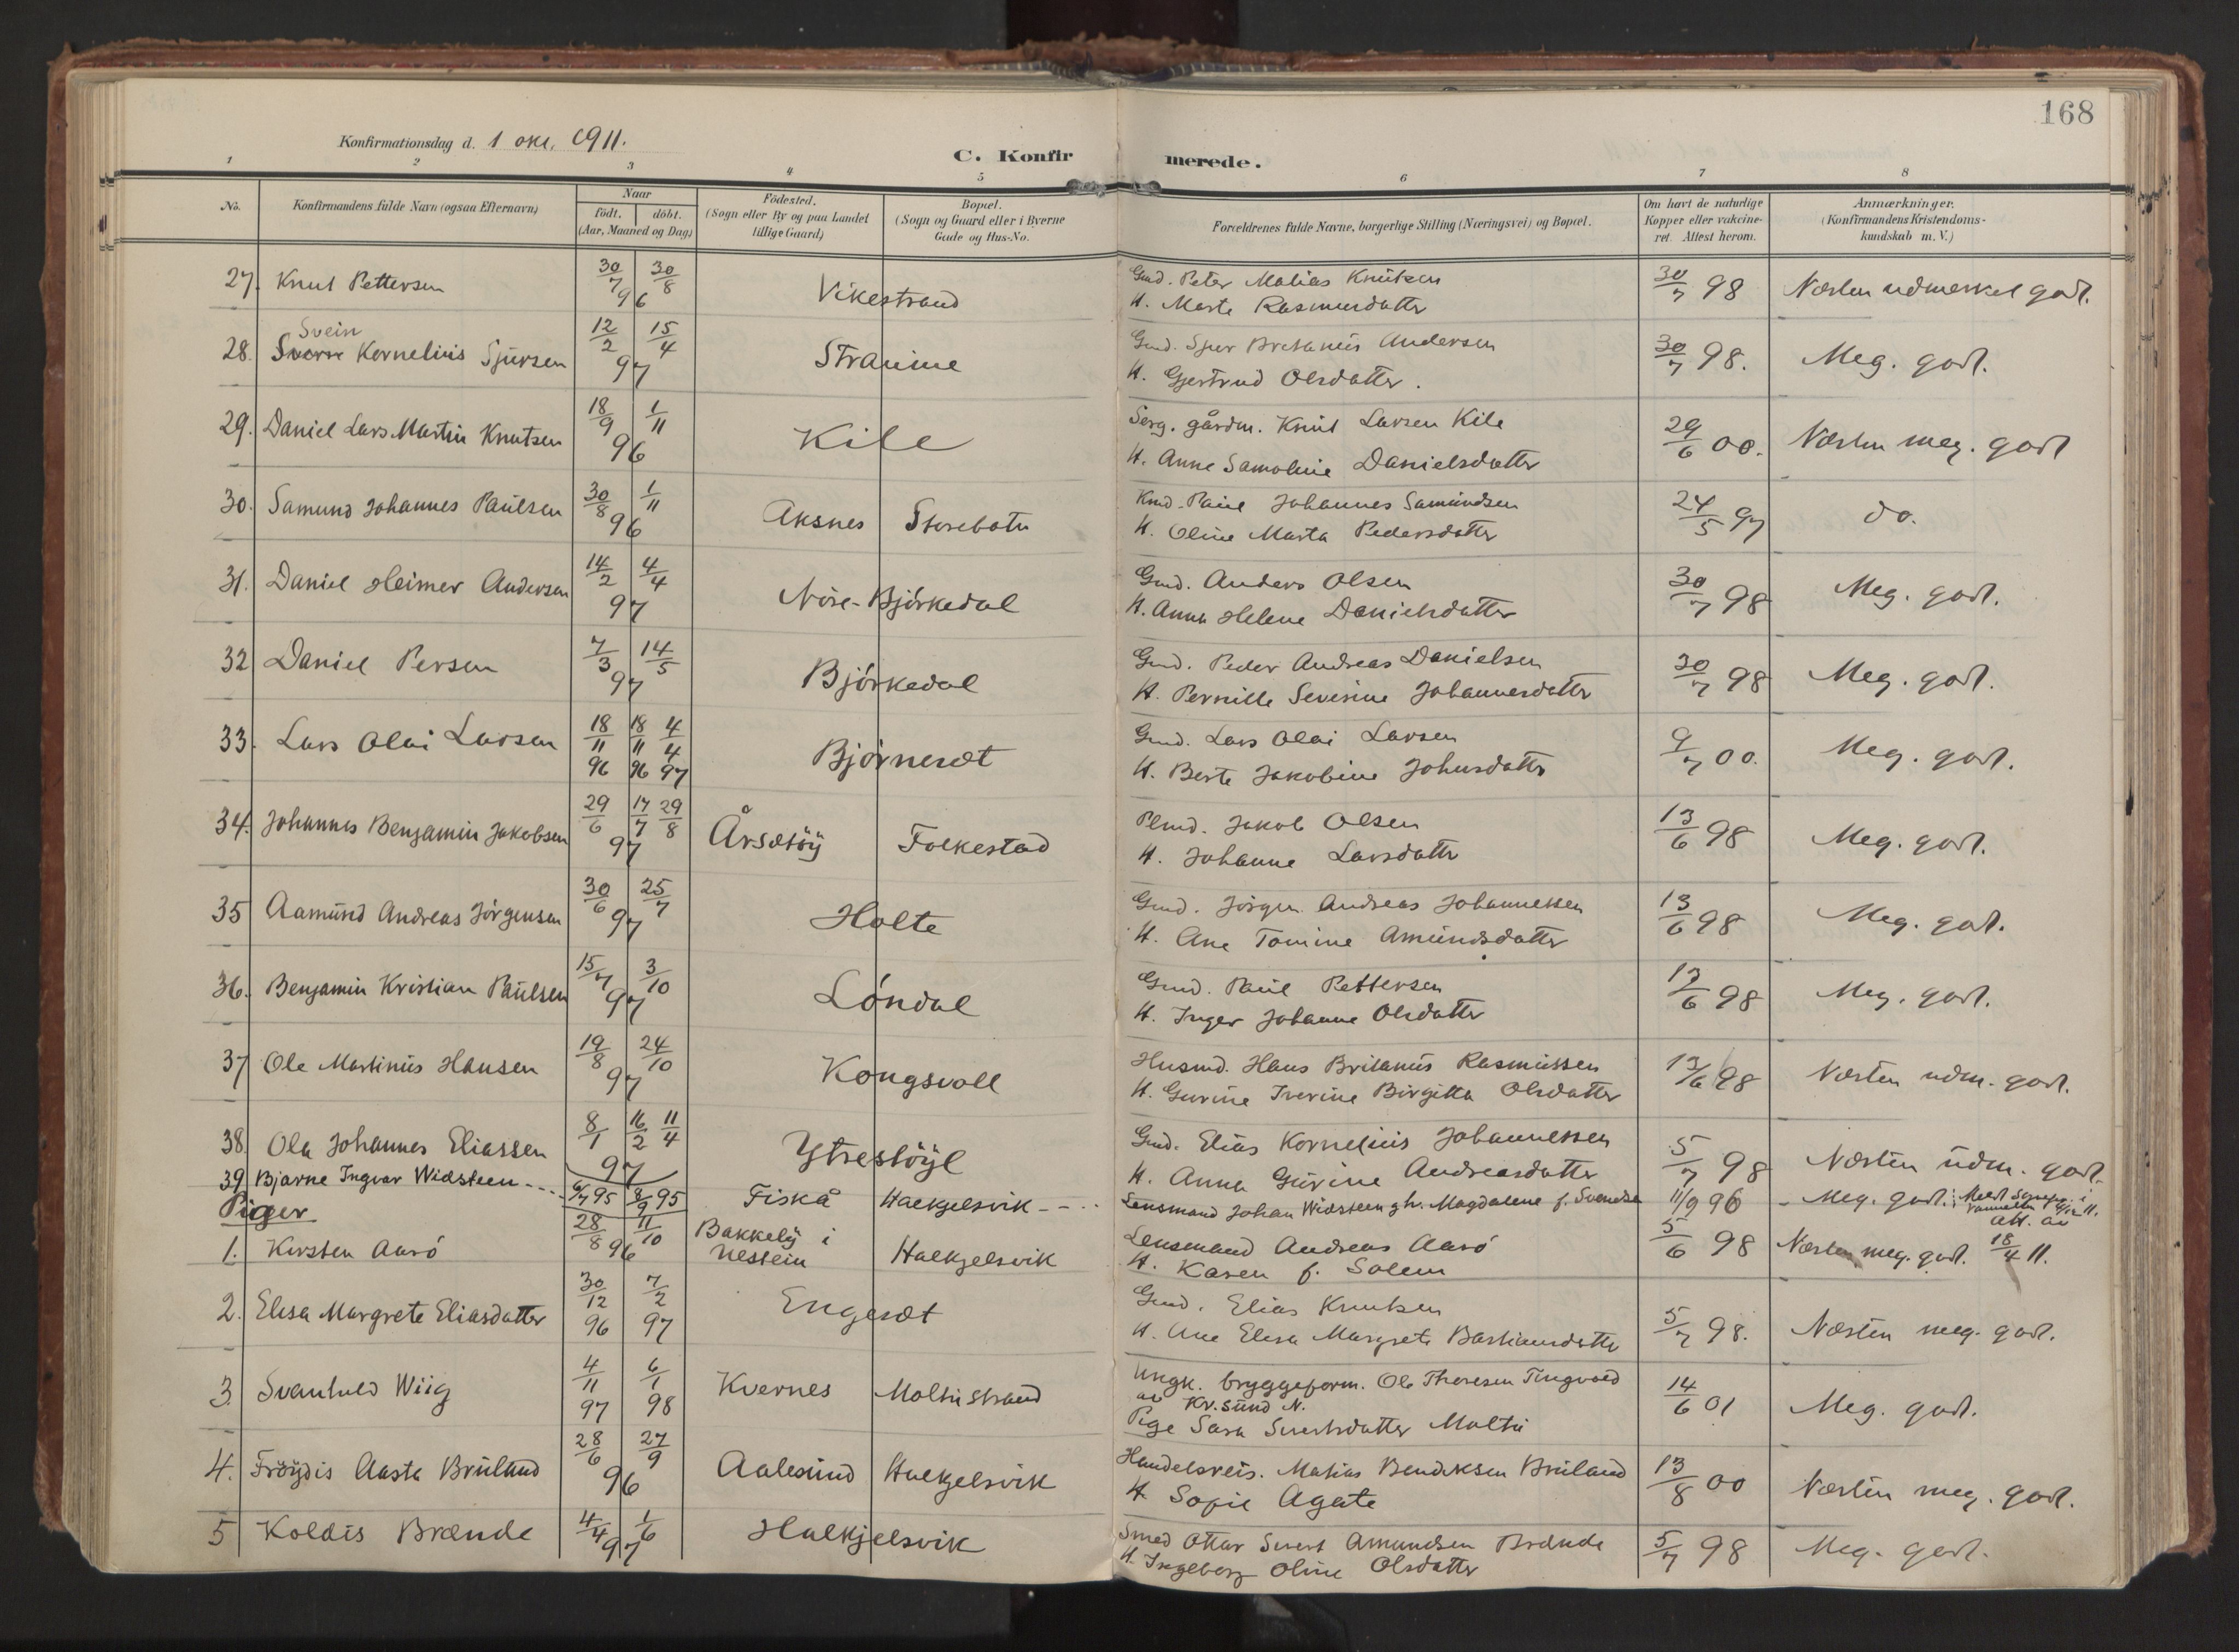 168
Konfirmationsdag d. 1 okt. 1911.
C. Konfirmerede.
1 2 3 4 5 6 7 8
No. Konfirmandens fulde Navn (ogsaa Efternavn) Naar født. døbt. (Aar, Maaned og Dag) Fødested. (Sogn eller By og paa Landet tillige Gaard) Bopæl. (Sogn og Gaard eller i Byerne Gade og Hus-No. Forældrenes fulde Navne, borgerlige Stilling (Næringsvei) og Bopæl. Om havt de naturlige Kopper eller vakcineret. Attest herom. Anmærkninger. (Konfirmandens Kristendomskundskab m. V.)
27. Knut Pettersen 30/7 30/8 96 Vikestrand Gmd. Peter Matias Knutsen 30/7 98 Næsten udmerket godt.
H. Marte Rasmusdatter
Svein
28. Sverre Kornelius Sjursen 12/2 15/4 97 Straume Gmd. Sjur Bretanius Andersen 30/7 98. Meg. godt.
H. Gjertrud Olsdatter.
29. Daniel Lars Martin Knutsen 18/9 1/11 96 Kile Serg. gårdm. Knut Larsen Kile 29/6 00. Næsten meg. godt
H. Anne Samoline Danielsdatter
30. Samund Johannes Paulsen 30/8 1/11 96 Aksnes Storebotn Kmd. Paul Johannes Samundsen 24/5 97 do.
H. Oline Marta Pedersdatter
31. Daniel Heimer Andersen 14/2 4/4 97 Nöre-Björkedal Gmd. Anders Olsen 30/7 98 Meg. godt.
H. Anna Helene Danielsdatter
32 Daniel Persen 7/3 14/5 97 Björkedal Gmd. Peder Andreas Danielsen 30/7 98 Meg. godt.
H. Pernille Severine Johannesdatter
33. Lars Olai Larsen 18/11 96 18/11 96 4/4 97 Björneset Gmd. Lars Olai Larsen 9/7 00. Meg. godt.
H. Berte Jakobine Johnsdatter
34. Johannes Benjamin Jakobsen 29/6 17/7 29/8 97 Årsetöy Folkestad Plmd. Jakob Olsen 13/6 98 Meg. godt.
H. Johanne Larsdatter
35 Aamund Andreas Jörgensen 30/6 25/7 97 Holte Gmd. Jörgen Andreas Johannessen 13/6 98 Meg. godt.
H. Ane Tomine Amundsdatter
36. Benjamin Kristian Paulsen 15/7 3/10 97 Löndal Gmd. Paul Pettersen 13/6 98 Meg. godt.
H. Inger Johanne Olsdatter
37 Ole Martinius Hansen 19/8 24/10 97 Kongsvoll Husmd. Hans Britanius Rasmussen 13/6 98 Næsten udm. godt.
H. Gurine Iverine Birgitta Olsdatter
38. Ola Johannes Eliassen 8/1 16/2 11/4 97 Ytrestöyl Gmd. Elias Kornelius Johannessen 5/7 98 Næsten udm. godt.
H. Anna Gurine Andreasdatter
39. Bjarne Ingvar Widsteen 6/7 95 8/9 95 Fiskå Halkjelsvik Lensmand Johan Widsteen g. h. Magdalene f. Svendsen 11/9 96 - Meg. godt.
Piger
1. Kirsten Aarö 28/8 11/10 96 Bakkely i Nestein Halkjelsvik Lensmand Andreas Aarö 5/6 98 Næsten meg. godt. att. av 18/4 11.
H. Karen f. Solem
2. Elisa Margrete Eliasdatter 30/12 96 7/2 97 Engeset Gmd. Elias Knutsen 5/7 98. Næsten meg. godt.
H. Ane Elisa Margrete Bastiansdatter
3. Svanhild Wiig 4/11 97 6/1 98 Kvernes Moltustrand Ungk. bryggeform. Ole Theresen Tingvold 14/6 01 Meg. godt.
av Kr.sund N.
Pige Sara Sivertsdatter Moltu
4. Fröydis Aasta Bruland 28/6 27/9 96 Aalesund Halkjelsvik Handelsreis. Matias Bendiksen Bruland 13/8 00 Næsten meg. godt.
H. Sofie Agate
5 Koldis Brænde 4/4 1/6 97 Halkjelsvik Smed Ottar Sivert Amundsen Brænde 5/7 98 Meg. godt.
H. Ingeborg Oline Olsdatter